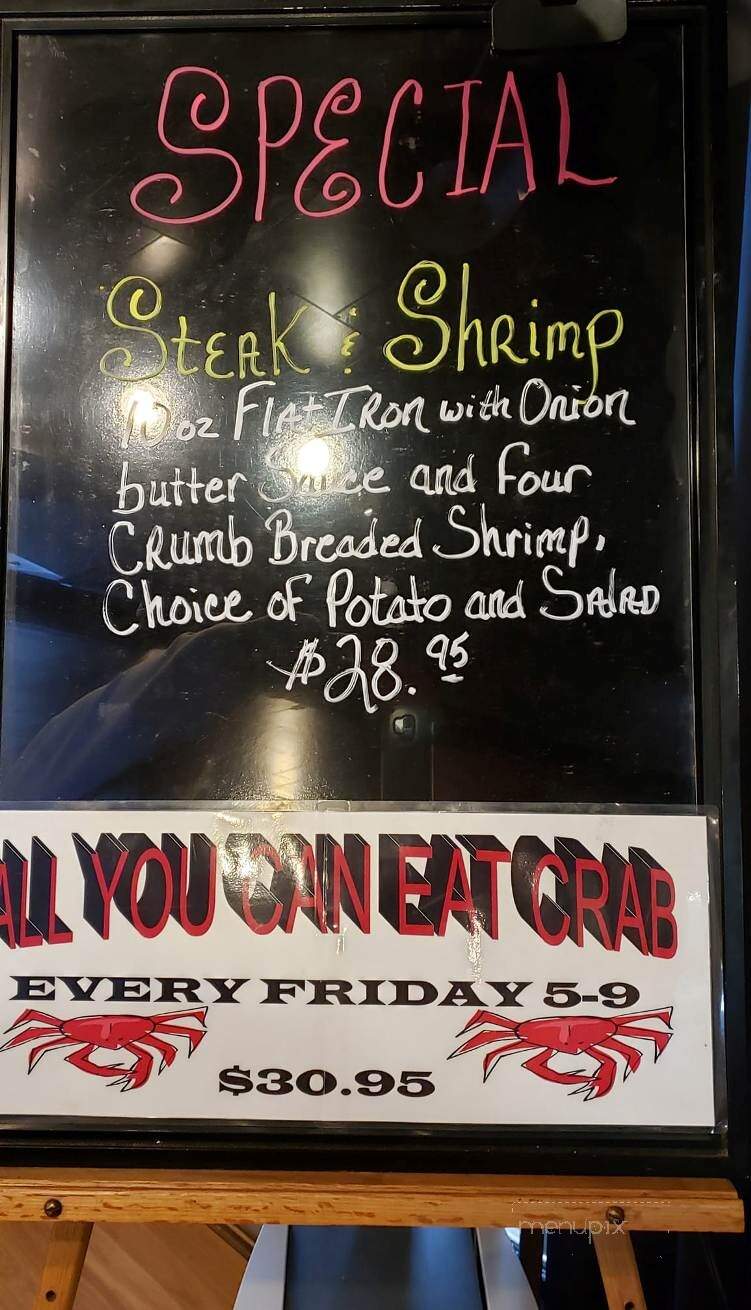 SPECIAL
Steak & Shrimp
10 oz Flat Iron with Onion
butter Sauce and Four
Crumb Breaded Shrimp.
Choice of Potato and Salad
$28.95
ALL YOU CAN EAT CRAB
EVERY FRIDAY 5-9
$30.95
menupix